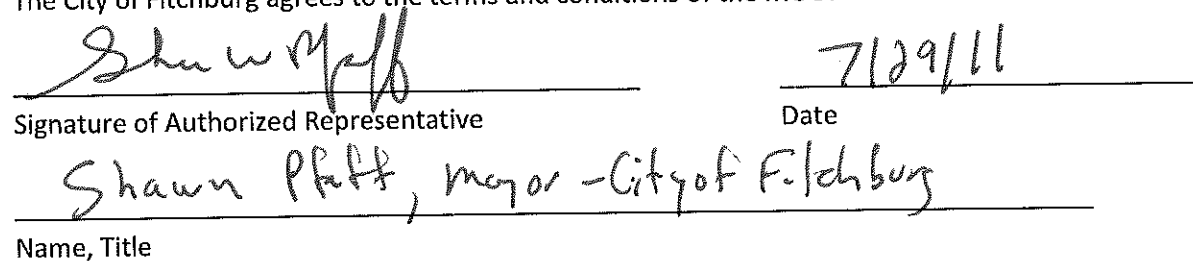 The City of Fitchburg agrees to the terms and conditions of the
Shawn Pfaff 7/29/11
Signature of Authorized Representative Date
Shawn Pfaff, Mayor - City of Fitchburg
Name, Title